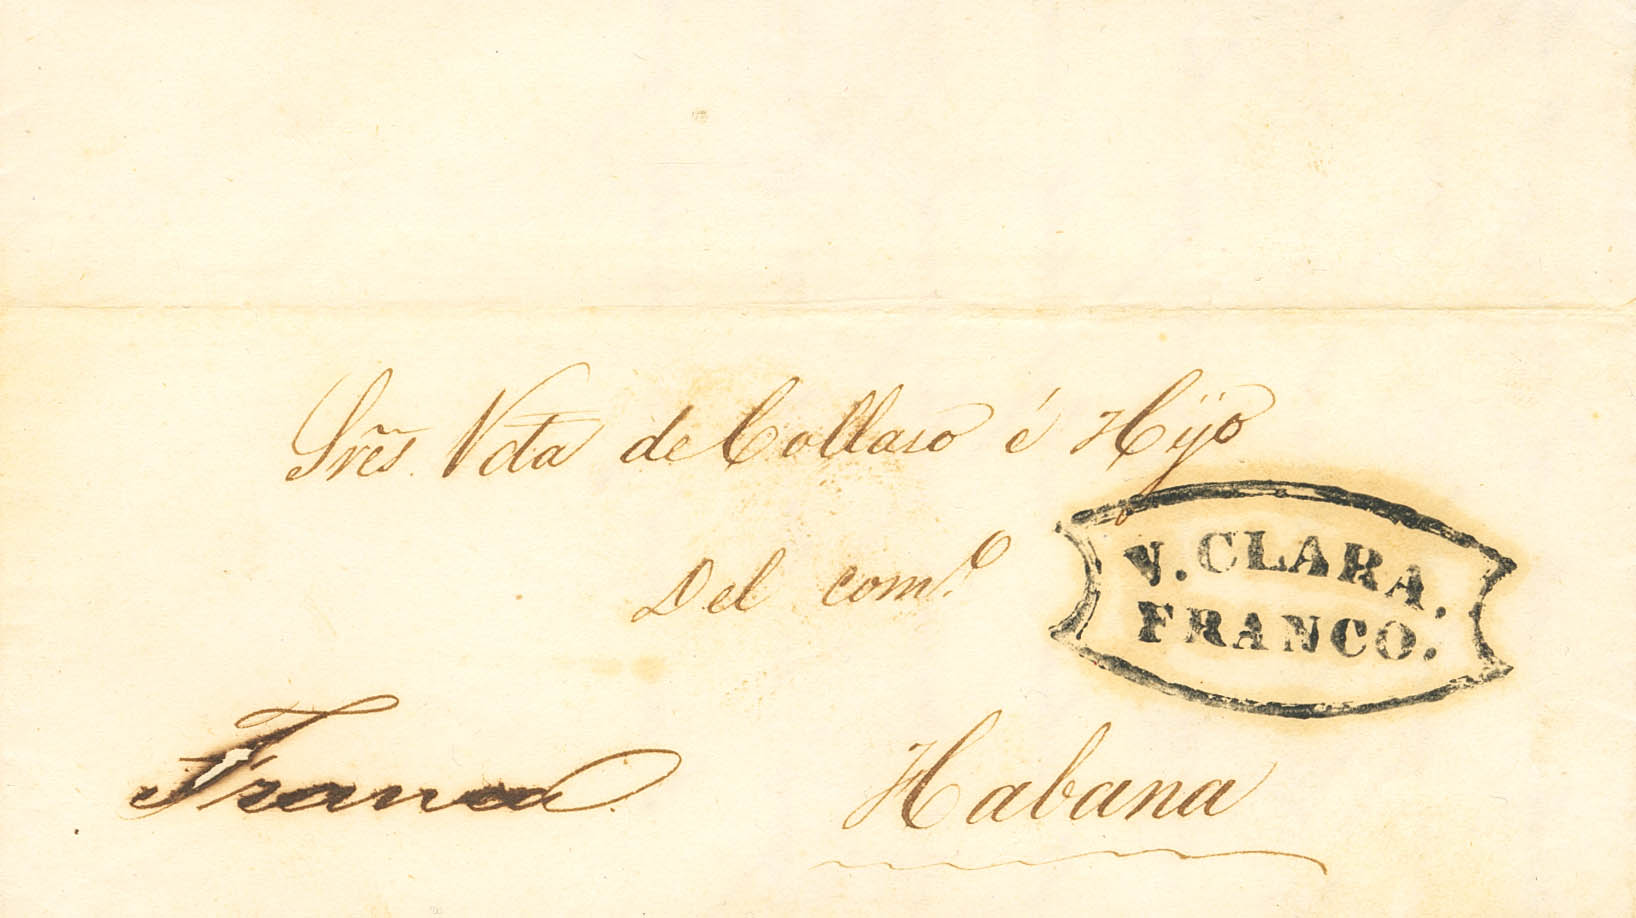 Sres. Vda de Collaso é Hijo
Del com.o
V. CLARA.
FRANCO.
Franco
Habana